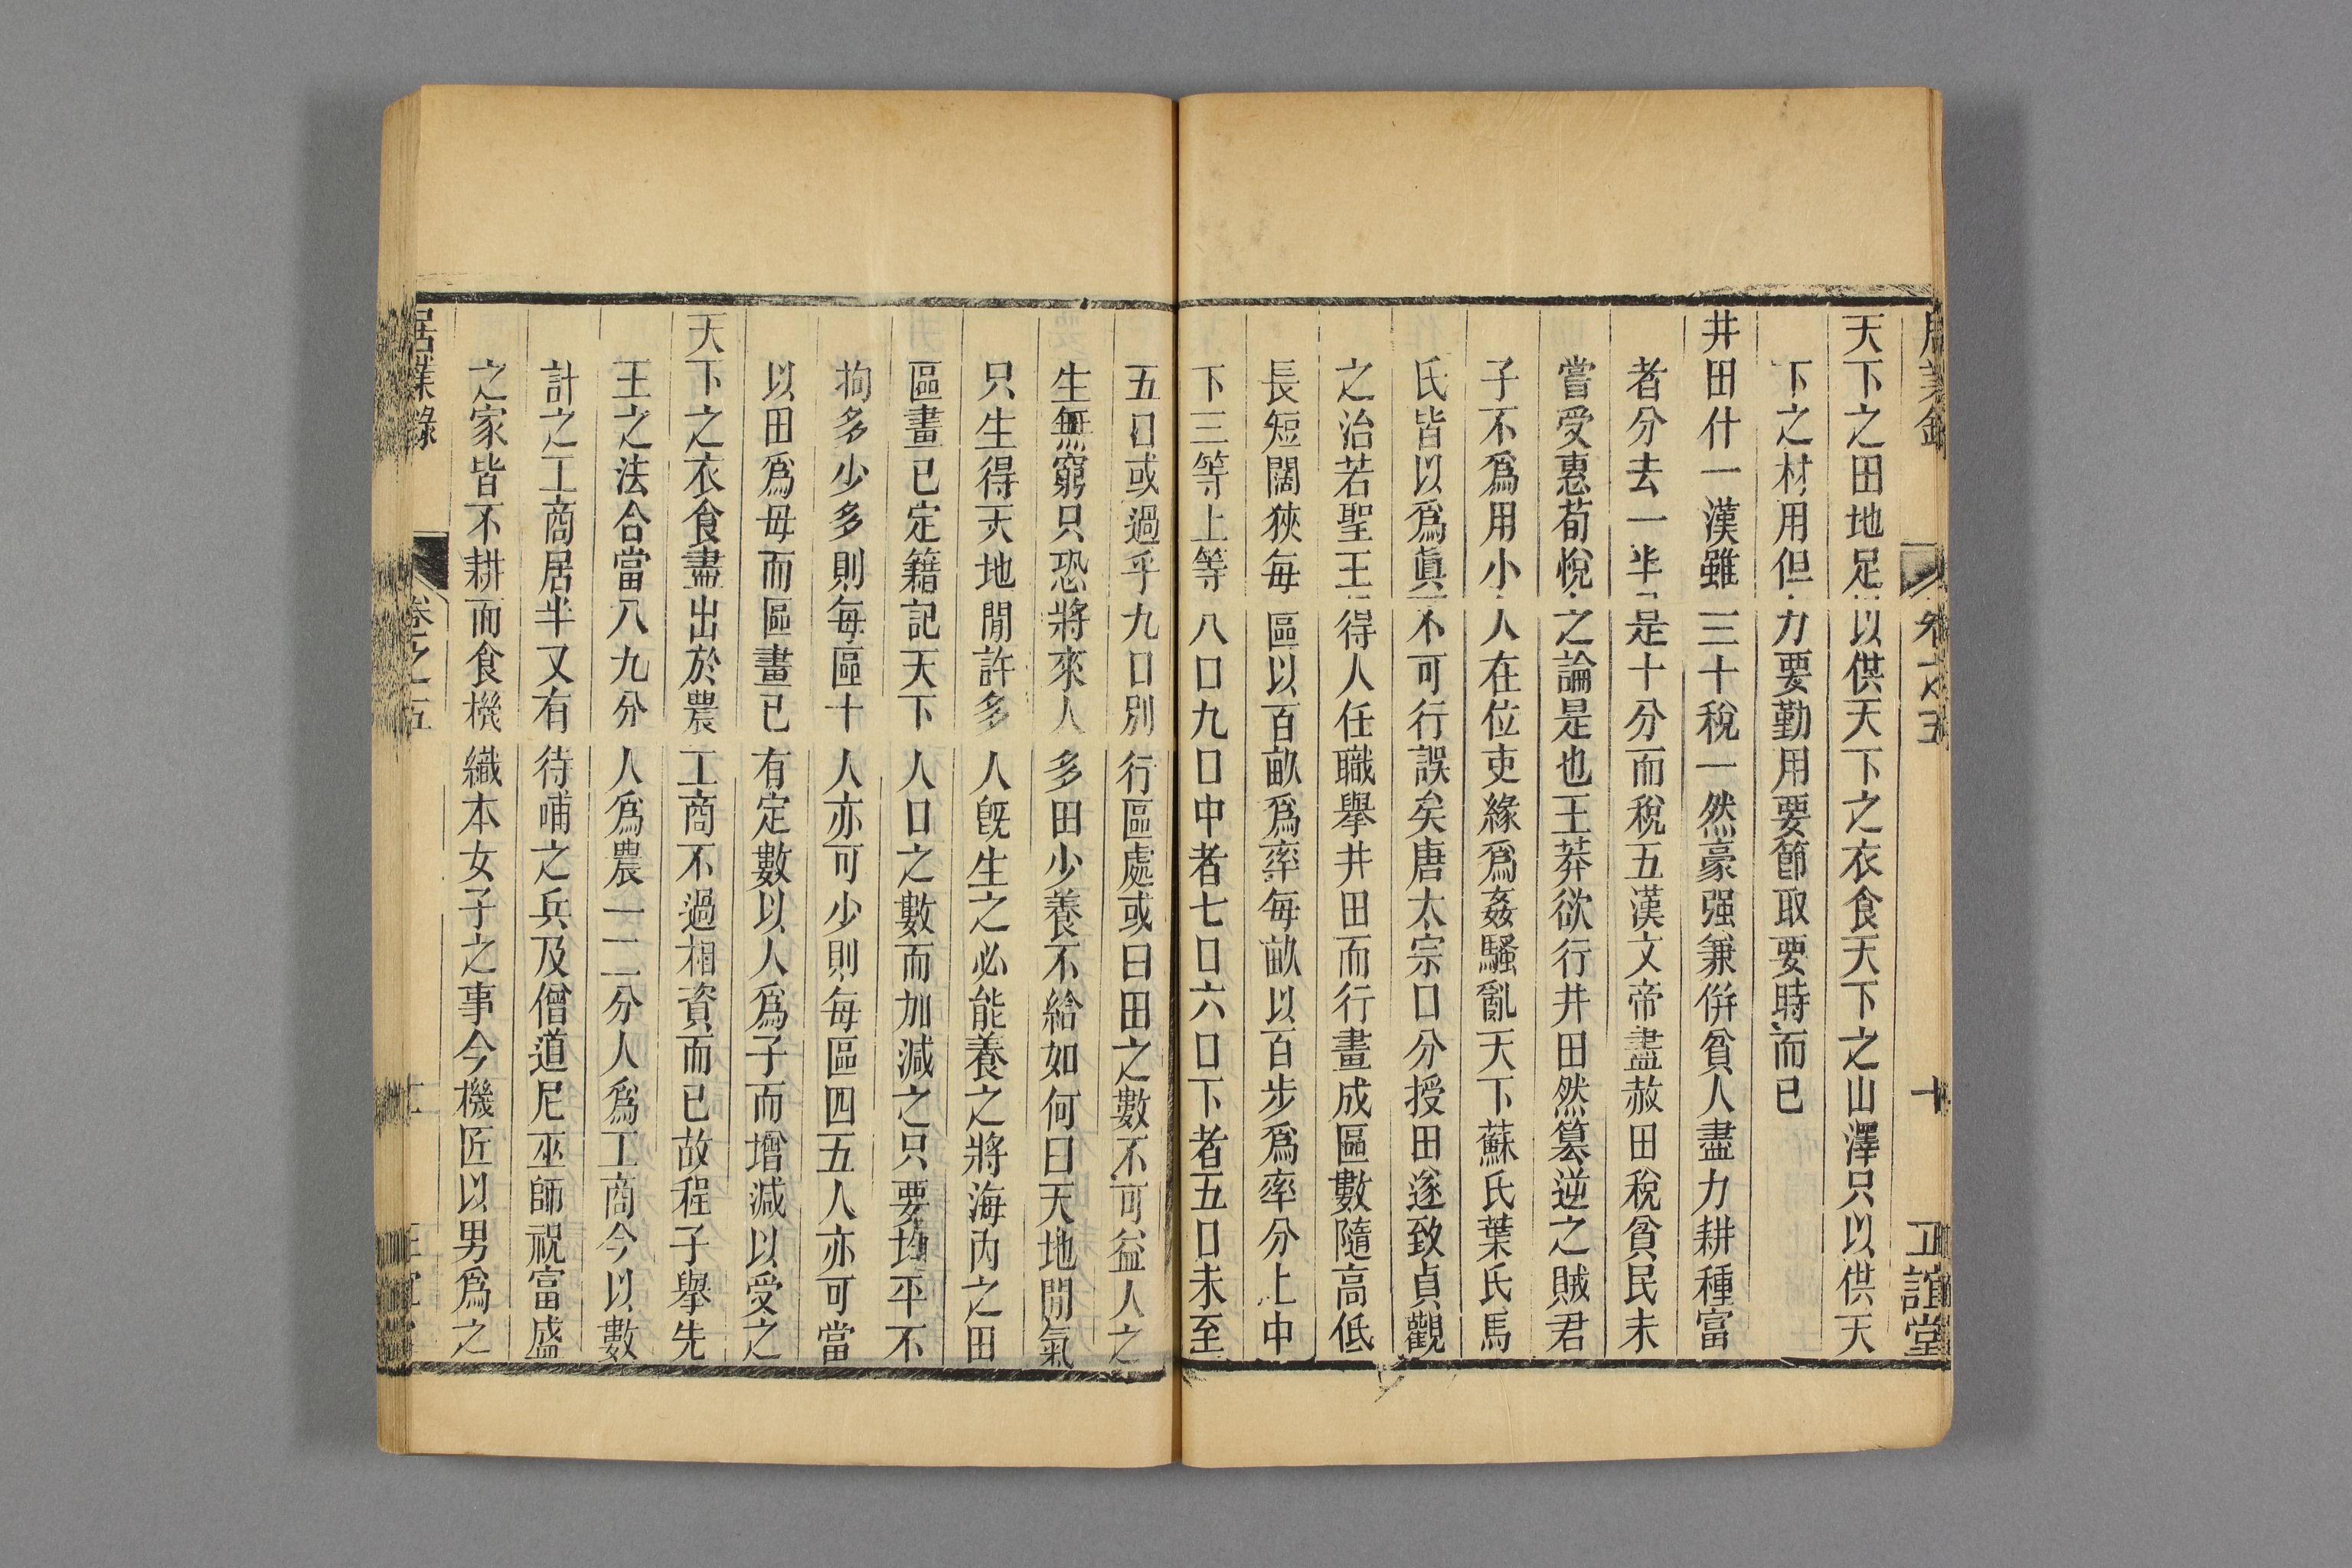 居業錄 卷之五 十 正誼堂
天下之田地足以供天下之衣食天下之山澤只以供天
下之材用但力要勤用要節取要時而已
井田什一漢雖三十稅一然豪强兼倂貧人盡力耕種富
者分去一半是十分而稅五漢文帝盡赦田稅貧民未
嘗受惠荀悅之論是也王莽欲行井田然簒逆之賊君
子不爲用小人在位吏緣爲姦騷亂天下蘇氏葉氏馬
氏皆以爲眞不可行誤矣唐太宗口分授田遂致貞觀
之治若聖王得人任職舉井田而行畫成區數隨高低
長短闊狹每區以百畝爲率每畝以百步爲率分上中
下三等上等八口九口中者七口六口下者五口未至
五口或過乎九口別行區處或曰田之數不可益人之
生無窮只恐將來人多田少養不給如何曰天地閒氣
只生得天地閒許多人旣生之必能養之將海內之田
區畫已定籍記天下人口之數而加減之只要均平不
拘多少多則每區十人亦可少則每區四五人亦可當
以田爲母而區畫已有定數以人爲子而增減以受之
天下之衣食盡出於農工商不過相資而已故程子舉先
王之法合當八九分人爲農一二分人爲工商今以數
計之工商居半又有待哺之兵及僧道尼巫師祝富盛
之家皆不耕而食機織本女子之事今機匠以男爲之
居業錄 卷之五